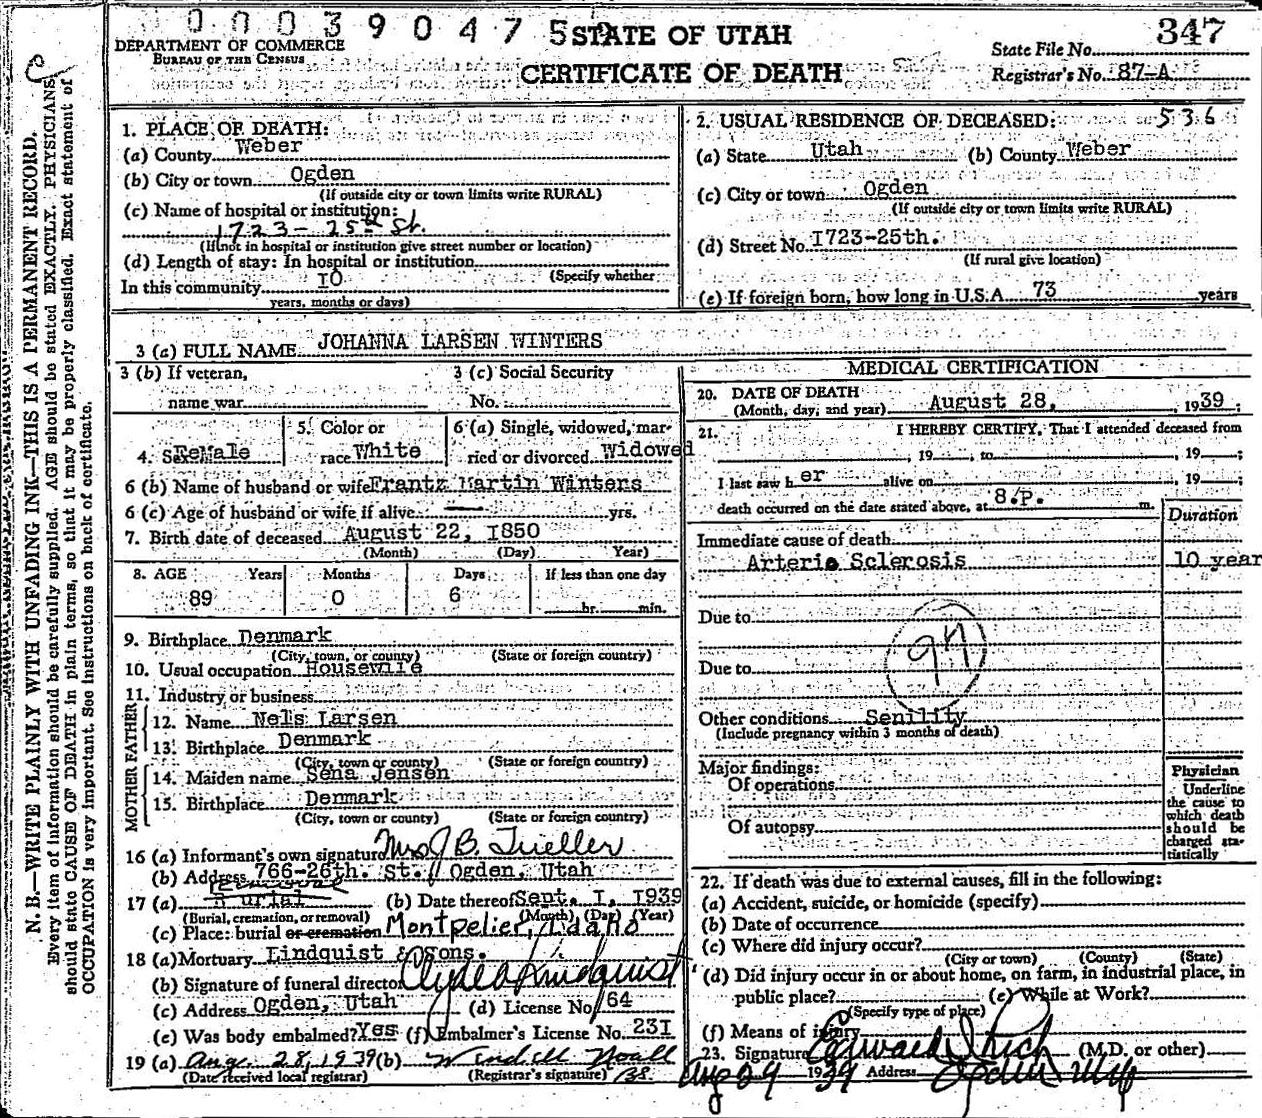 00039047 5
STATE OF UTAH
347
DEPARTMENT OF COMMERCE
BUREAU OF THE CENSUS
CERTIFICATE OF DEATH
State File No.
Registrar's No. 87-A
N. B.—WRITE PLAINLY WITH UNFADING INK—THIS IS A PERMANENT RECORD.
Every item of information should be carefully supplied. AGE should be stated EXACTLY. PHYSICIANS
should state CAUSE OF DEATH in plain terms, so that it may be properly classified. Exact statement of
OCCUPATION is very important. See instructions on back of certificate.
1. PLACE OF DEATH:
(a) County Weber
(b) City or town Ogden
(If outside city or town limits write RURAL)
(c) Name of hospital or institution:
1723- 25th St.
(If not in hospital or institution give street number or location)
(d) Length of stay: In hospital or institution
(Specify whether
In this community I0
years, months or days)
2. USUAL RESIDENCE OF DECEASED: 536
(a) State Utah (b) County Weber
(c) City or town Ogden
(If outside city or town limits write RURAL)
(d) Street No. I723-25th.
(If rural give location)
(e) If foreign born, how long in U.S.A. 73 years
3 (a) FULL NAME JOHANNA LARSEN WINTERS
3 (b) If veteran,
name war
3 (c) Social Security
No.
4. Sex Female
5. Color or
race White
6 (a) Single, widowed, mar-
ried or divorced Widowed
6 (b) Name of husband or wife Frantz Martin Winters
6 (c) Age of husband or wife if alive — yrs.
7. Birth date of deceased August 22, I850
(Month) (Day) Year)
8. AGE Years Months Days If less than one day
89 0 6 hr. min.
9. Birthplace Denmark
(City, town, or county) (State or foreign country)
10. Usual occupation Housewife
11. Industry or business
FATHER
12. Name Nels Larsen
13. Birthplace Denmark
(City, town or county) (State or foreign country)
MOTHER
14. Maiden name Sena Jensen
15. Birthplace Denmark
(City, town or county) (State or foreign country)
16 (a) Informant's own signature Mrs J B. Tueller
(b) Address 766-26th. St. Ogden, Utah
Removal
17 (a) Burial (b) Date thereof Sept. I, I939
(Burial, cremation, or removal) (Month) (Day) (Year)
(c) Place: burial or cremation Montpelier, Idaho
18 (a) Mortuary Lindquist & Sons.
(b) Signature of funeral director Clyde Lindquist
(c) Address Ogden, Utah (d) License No. 164
(e) Was body embalmed? Yes (f) Embalmer's License No. 23I
19 (a) Aug. 28, 1939 (b) Wendell Noall
(Date received local registrar) (Registrar's signature)
MEDICAL CERTIFICATION
20. DATE OF DEATH
(Month, day, and year) August 28, , 1939 ;
21. I HEREBY CERTIFY, That I attended deceased from
, 19 , to , 19 ;
I last saw her alive on , 19 ;
death occurred on the date stated above, at 8.p. m.
Duration
Immediate cause of death
Arterio Sclerosis 10 year
Due to
Due to
Other conditions Senility
(Include pregnancy within 3 months of death)
Major findings:
Of operations
Of autopsy
Physician
Underline
the cause to
which death
should be
charged sta-
tistically
22. If death was due to external causes, fill in the following:
(a) Accident, suicide, or homicide (specify)
(b) Date of occurrence
(c) Where did injury occur?
(City or town) (County) (State)
(d) Did injury occur in or about home, on farm, in industrial place, in
public place? (e) While at Work?
(Specify type of place)
(f) Means of injury
23. Signature Edward I Rich (M.D. or other)
Aug 29 1939 Address Ogden Utah